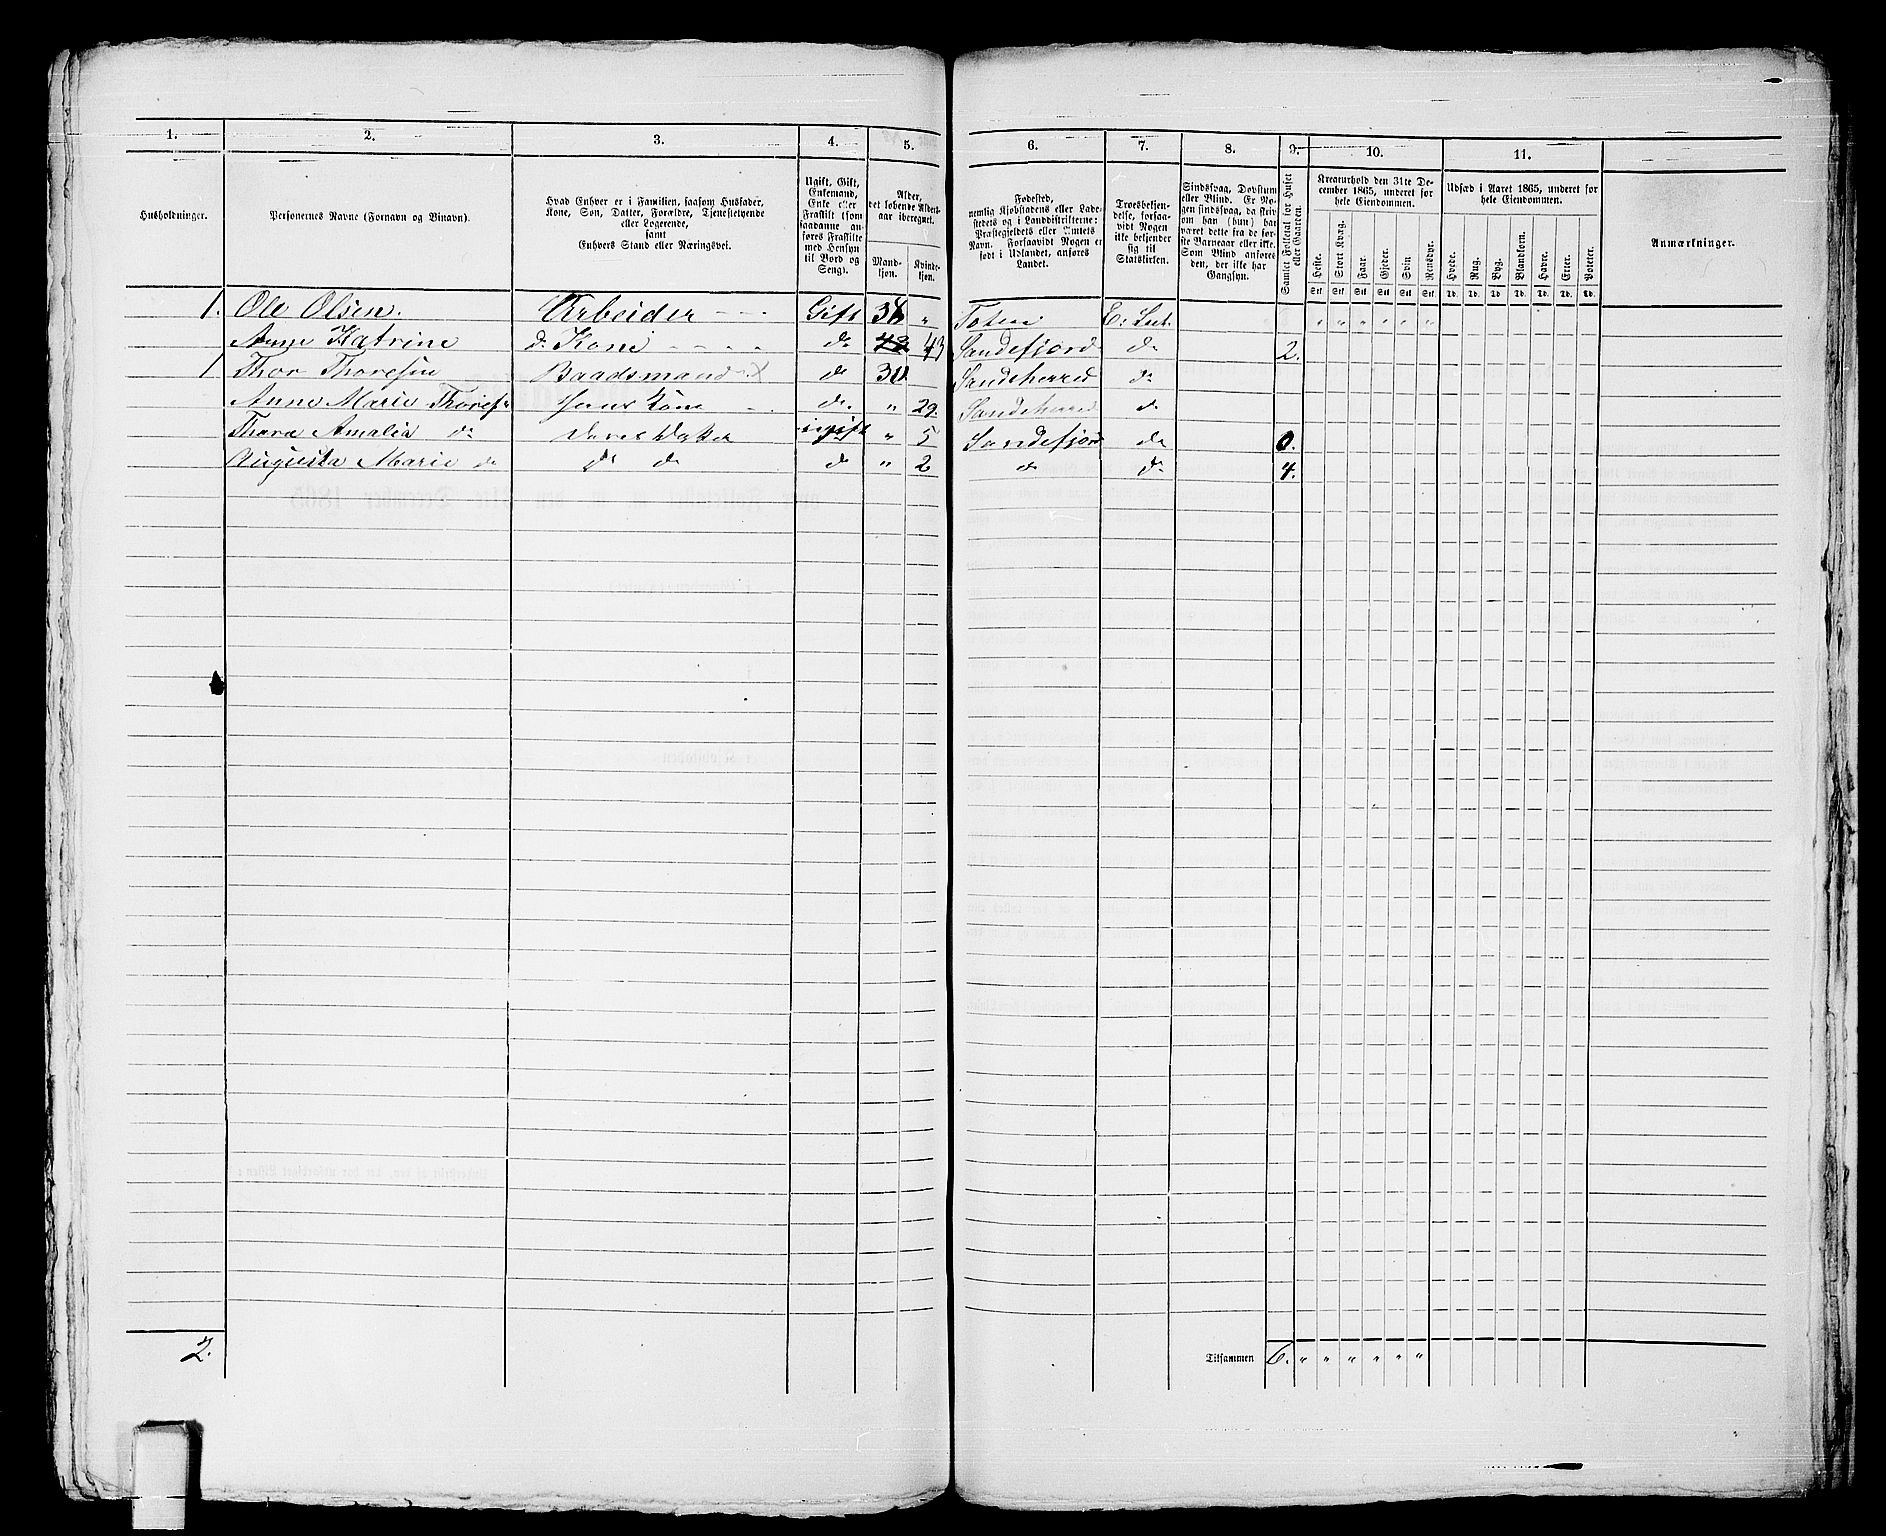 1. 2. 3. 4. 5. 6. 7. 8. 9. 10. 11.
Husholdninger.
Personernes Navne (Fornavn og Binavn).
Hvad Enhver er i Familien, saasom Husfader,
Kone, Søn, Datter, Forældre, Tjenestetyende
eller Logerende,
samt
Enhvers Stand eller Næringsvei.
Ugift, Gift,
Enkemand,
Enke eller
Fraskilt (som
saadanne an-
føres Fraskilte
med Hensyn
til Bord og
Seng).
Alder,
det løbende Alders-
aar iberegnet.
Mand-
kjøn.
Kvinde-
kjøn.
Fødested,
nemlig Kjøbstadens eller Lade-
stedets og i Landdistrikterne:
Præstegjeldets eller Amtets
Navn. Forsaavidt Nogen er
født i Udlandet, anføres
Landet.
Troesbekjen-
delse, forsaa-
vidt Nogen
ikke bekjender
sig til
Statskirken.
Sindssvag, Døvstum
eller Blind. Er No-
gen sindssvag, da skriv
om han (hun) har
været dette fra de før-
ste Barneaar eller ikke.
Som Blind anføres
den, der ikke har
Gangsyn.
Samlet Folketal for Huset
eller Gaarden.
Kreaturhold den 31te De-
cember 1865, underet for
hele Eiendommen.
Heste. Stort Kvæg. Faar. Gjeder. Svin. Rensdyr.
Stk. Stk. Stk. Stk. Stk. Stk.
Udsæd i Aaret 1865, underet for
hele Eiendommen.
Hvede. Rug. Byg. Blandkorn. Havre. Erter. Poteter.
Td. Td. Td. Td. Td. Td. Td.
Anmærkninger.
1. Ole Olsen. Arbeider - - - Gift 38 " Toten E: Luth. " " " " " "
Anne Katrine d. Kone - - - - do 43 Sandefjord do 2.
1 Thor Thoresen Baadsmand X do 30 Sandeherred do
Anne Marie Thores Hans Kone - do. " 29. Sandeherred do
Thora Amalia do Deres Datter ugift " 5 Sandefjord do 0.
Augusta Marie do do do do " 2 do do 4.
2. Tilsammen 6. " " " " " "